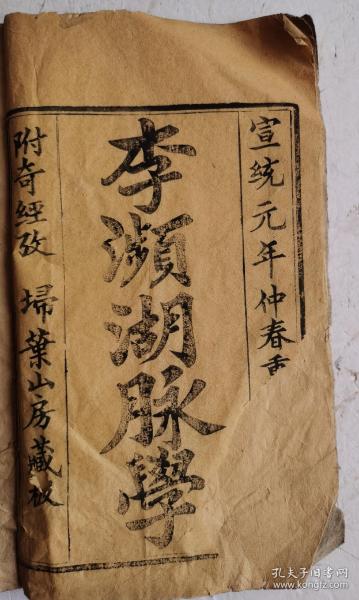 宣统元年仲春重
李瀕湖脉學
附奇經攷 埽葉山房藏板
孔夫子旧书网